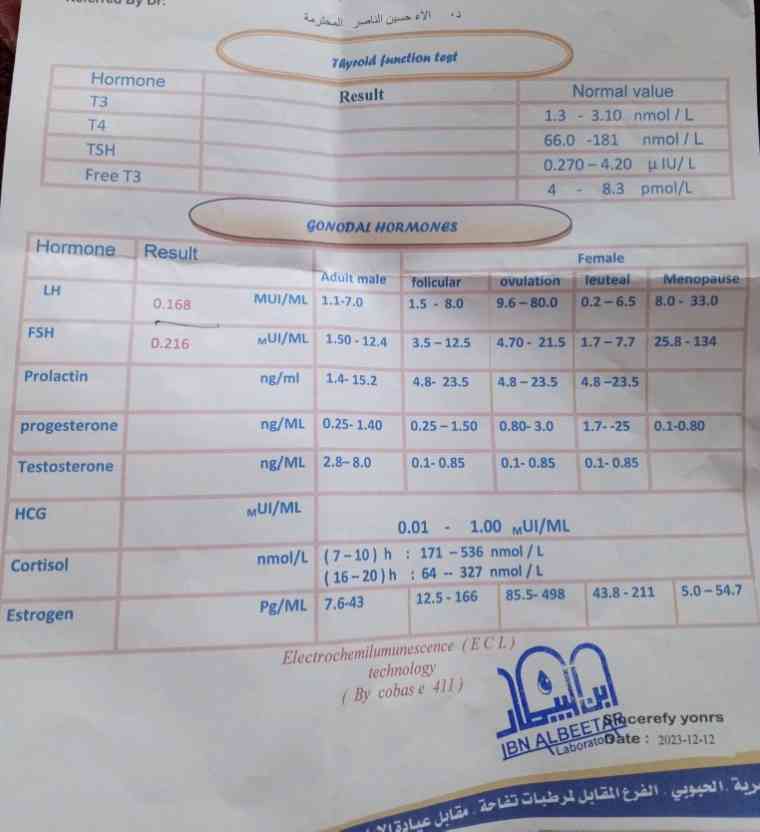 Referred By Dr:
د. الاء حسين الناصر المحترمة
Thyroid function test
Hormone Result Normal value
T3 1.3 - 3.10 nmol / L
T4 66.0 -181 nmol / L
TSH 0.270 – 4.20 µ IU/ L
Free T3 4 - 8.3 pmol/L
GONODAL HORMONES
Hormone Result Adult male Female
folicular ovulation leuteal Menopause
LH 0.168 MUI/ML 1.1-7.0 1.5 - 8.0 9.6 – 80.0 0.2 – 6.5 8.0 - 33.0
FSH 0.216 MUI/ML 1.50 - 12.4 3.5 – 12.5 4.70 - 21.5 1.7 – 7.7 25.8 - 134
Prolactin ng/ml 1.4- 15.2 4.8- 23.5 4.8 – 23.5 4.8 –23.5
progesterone ng/ML 0.25- 1.40 0.25 – 1.50 0.80- 3.0 1.7- -25 0.1-0.80
Testosterone ng/ML 2.8– 8.0 0.1- 0.85 0.1- 0.85 0.1- 0.85
HCG MUI/ML 0.01 - 1.00 MUI/ML
Cortisol nmol/L ( 7 – 10 ) h : 171 – 536 nmol / L
( 16 – 20 ) h : 64 -- 327 nmol / L
Estrogen Pg/ML 7.6-43 12.5 - 166 85.5- 498 43.8 - 211 5.0 – 54.7
Electrochemilumunescence ( E C L )
technology
( By cobas e 411 )
ابن البيطار
IBN ALBEETAR
Laboratory
Sincerefy yonrs
Date : 2023-12-12
الحبوبي . الفرع المقابل لمرطبات تفاحة . مقابل عيادة